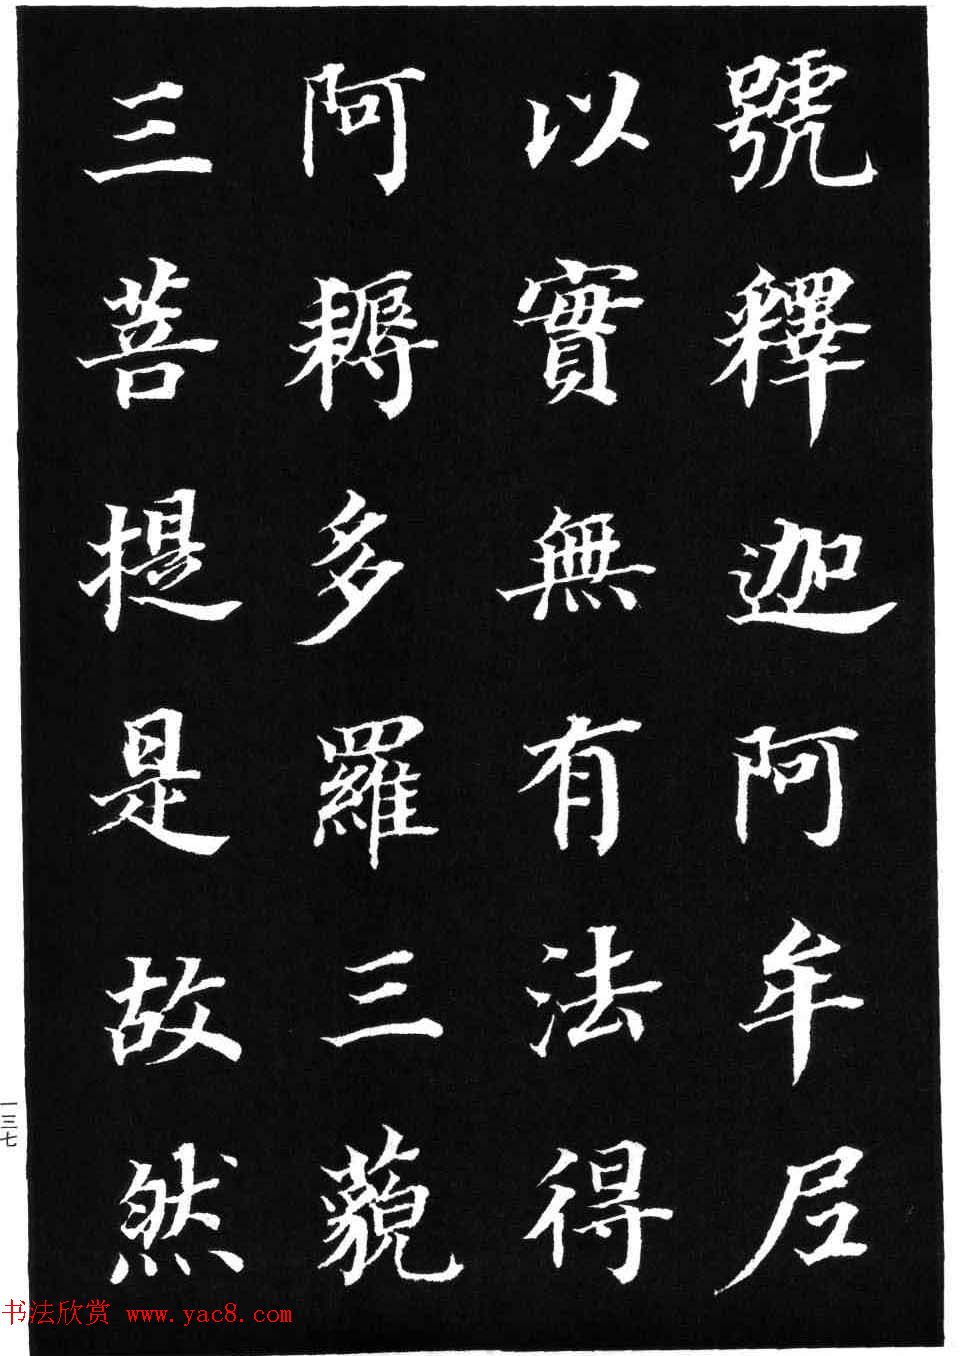 號釋迦阿牟𡰱
以實無有法得
阿耨多羅三藐
三菩提是故然
一三七
书法欣赏 www.yac8.com